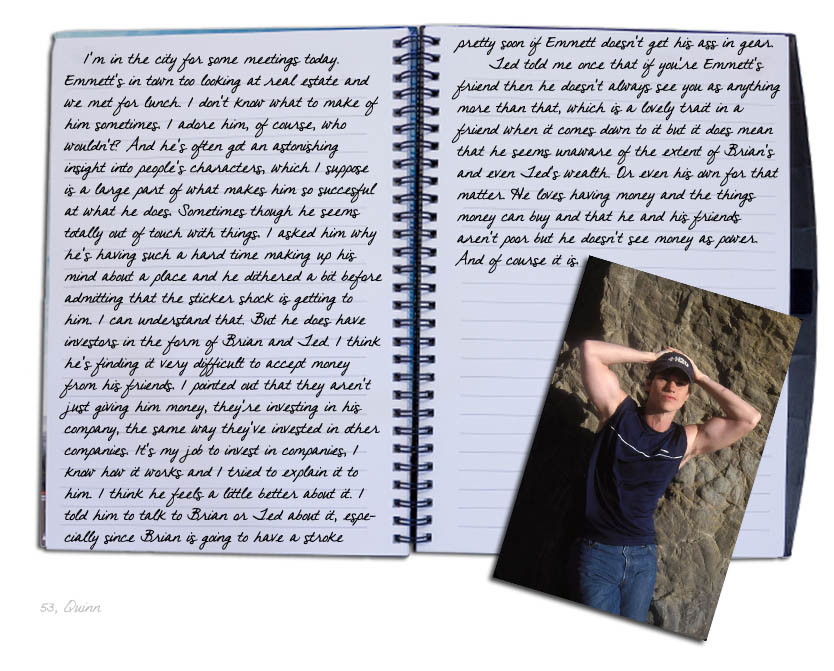 I'm in the city for some meetings today.
Emmett's in town too looking at real estate and
we met for lunch. I don't know what to make of
him sometimes. I adore him, of course, who
wouldn't? And he's often got an astonishing
insight into people's characters, which I suppose
is a large part of what makes him so succesful
at what he does. Sometimes though he seems
totally out of touch with things. I asked him why
he's having such a hard time making up his
mind about a place and he dithered a bit before
admitting that the sticker shock is getting to
him. I can understand that. But he does have
investors in the form of Brian and Ted. I think
he's finding it very difficult to accept money
from his friends. I pointed out that they aren't
just giving him money, they're investing in his
company, the same way they've invested in other
companies. It's my job to invest in companies, I
know how it works and I tried to explain it to
him. I think he feels a little better about it. I
told him to talk to Brian or Ted about it, espe-
cially since Brian is going to have a stroke
pretty soon if Emmett doesn't get his ass in gear.
Ted told me once that if you're Emmett's
friend then he doesn't always see you as anything
more than that, which is a lovely trait in a
friend when it comes down to it but it does mean
that he seems unaware of the extent of Brian's
and even Ted's wealth. Or even his own for that
matter. He loves having money and the things
money can buy and that he and his friends
aren't poor but he doesn't see money as power.
And of course it is.
53, Quinn